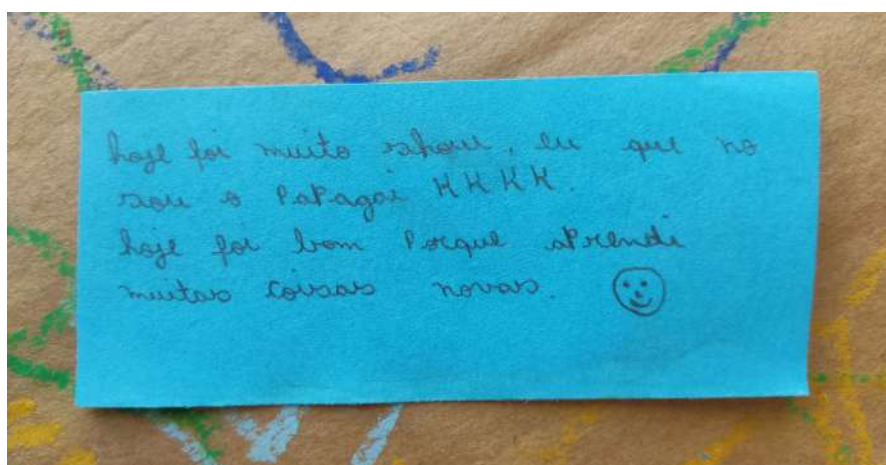 hoje foi muito show, eu que no
sou o PaPagai KKKK.
hoje foi bom Porque aPrendi
muitas coisas novas.